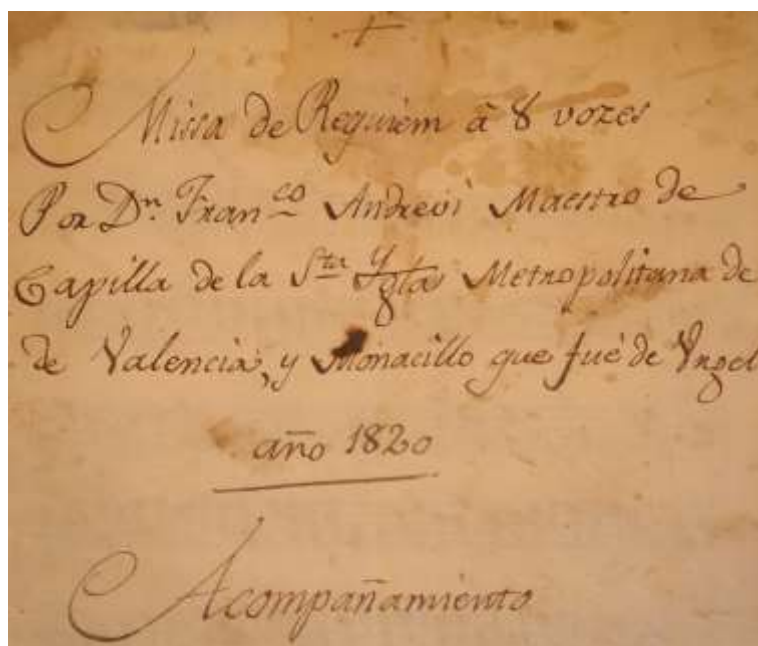 Missa de Requiem â 8 vozes
Por Dn. Franco Andreví Maestro de
Capilla de la Sta Ygla Metropolitana de
de Valencia, y Monacillo que fué de Urgel
año 1820
Acompañamiento